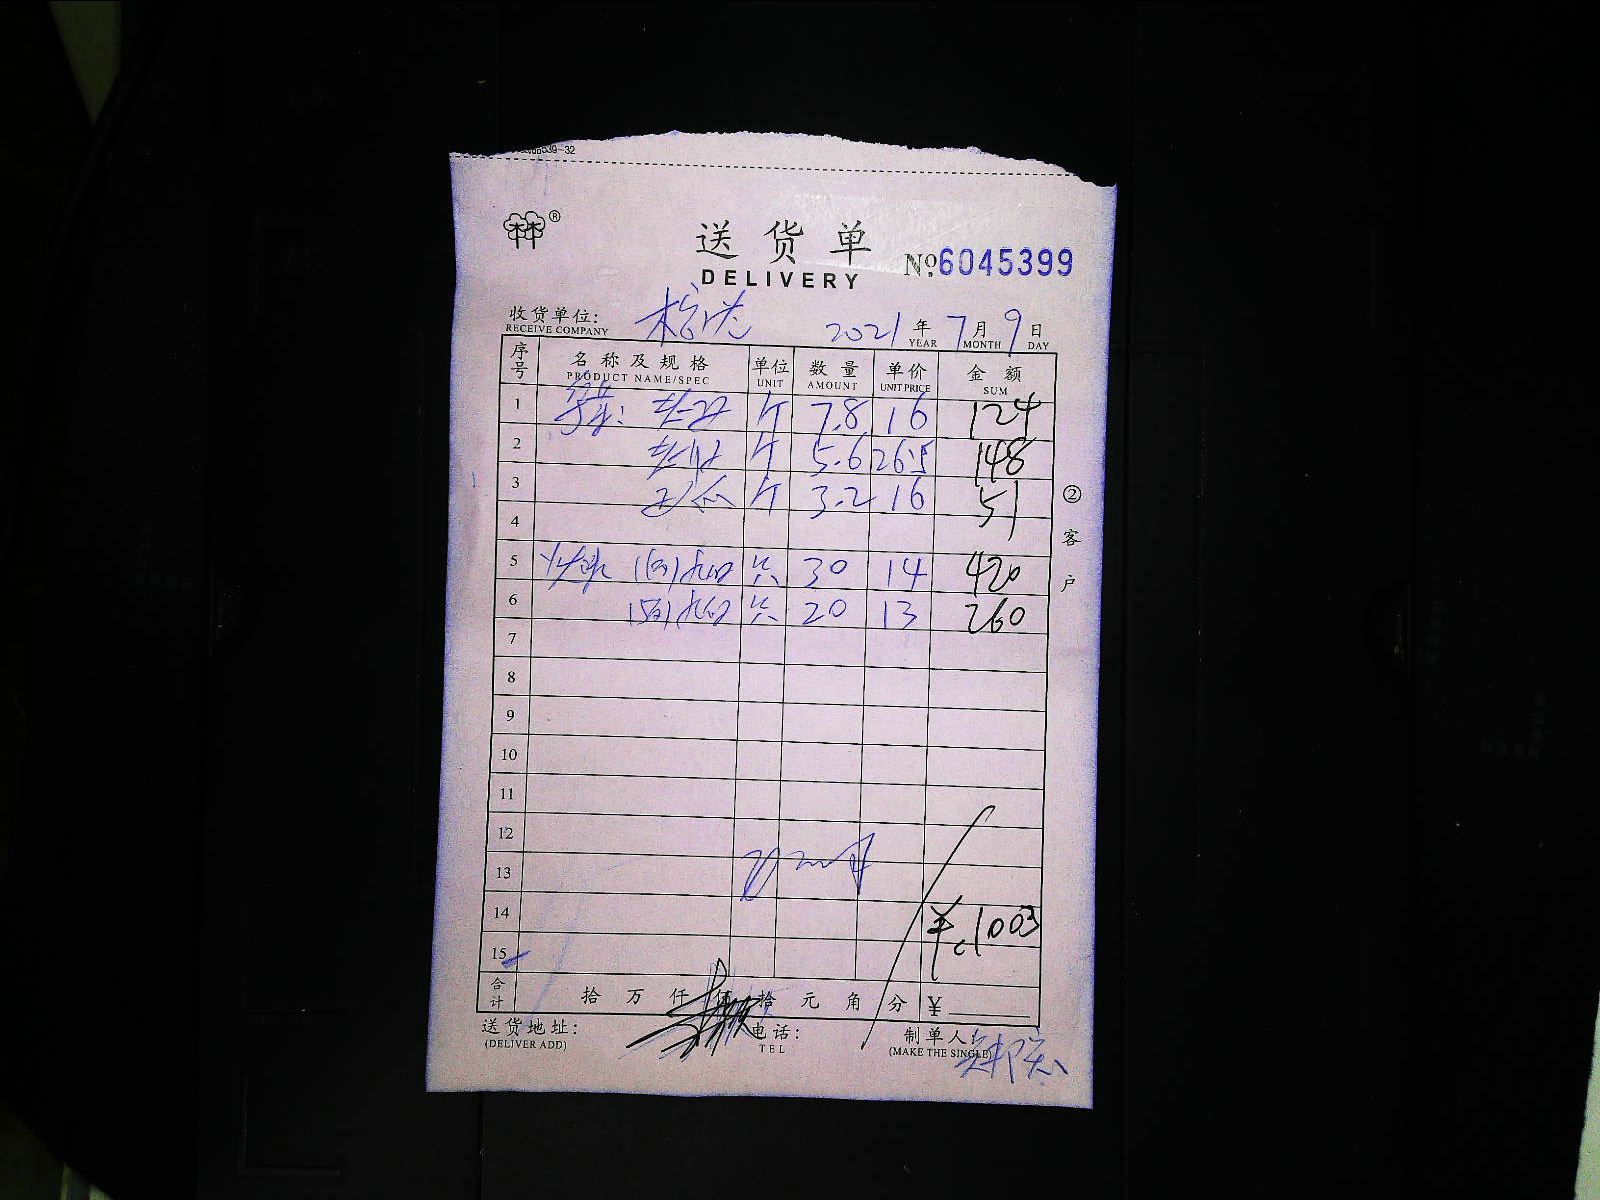 39-32
®
送货单
DELIVERY
№:6045399
收货单位:
RECEIVE COMPANY
2021 年 7 月 9 日
YEAR MONTH DAY
序号 名称及规格 单位 数量 单价 金额
PRODUCT NAME/SPEC UNIT AMOUNT UNIT PRICE SUM
1 个 7.8 16 124
2 个 5.6 26.5 148
3 个 3.2 16 51
4
5 只 30 14 420
6 只 20 13 260
7
8
9
10
11
12
13
14 ¥1003
15
合计 拾 万 仟 佰 拾 元 角 分 ¥
送货地址: 电话: 制单人:
(DELIVER ADD) TEL (MAKE THE SINGLE)
② 客户